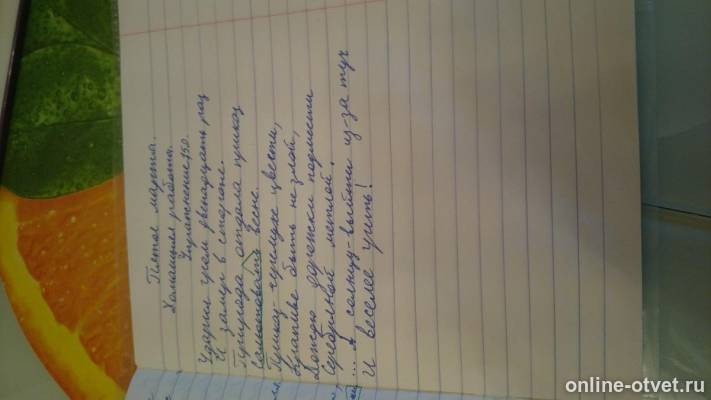 Пятое марта.
Домашняя работа.
Упражнение 150.
Ударил гром двенадцать раз
И замер в стороне.
Природа отдала приказ
весне.
Приказ - черёмухе цвести,
Крапиве быть не злой,
Дождю дорожки подмести
Серебряной метлой.
... А солнцу - выйти из-за туч
И веселее греть!
online-otvet.ru